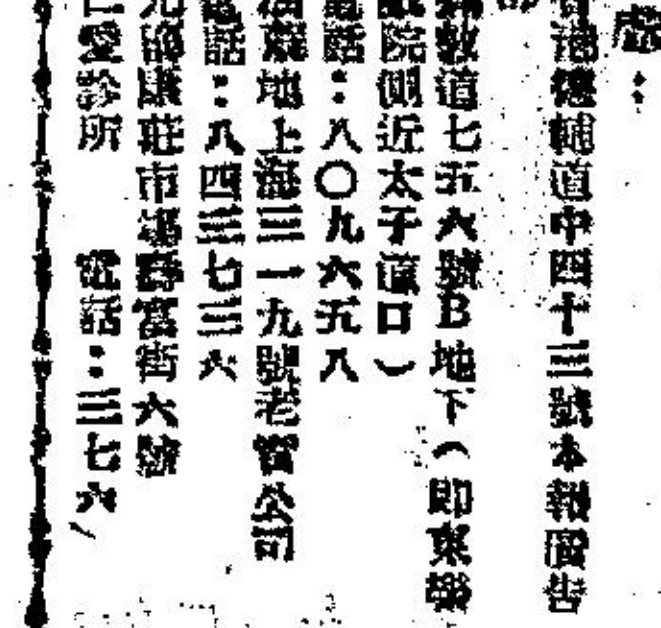 處：
香港德輔道中四十三號本報廣告
部
彌敦道七五六號B地下（即東樂
戲院側近太子道口）
電話：八〇九六五八
油蔴地上海三一九號老寶公司
電話：八四三七三六
元朗康莊市場壽富街六號
仁愛診所　電話：三七六